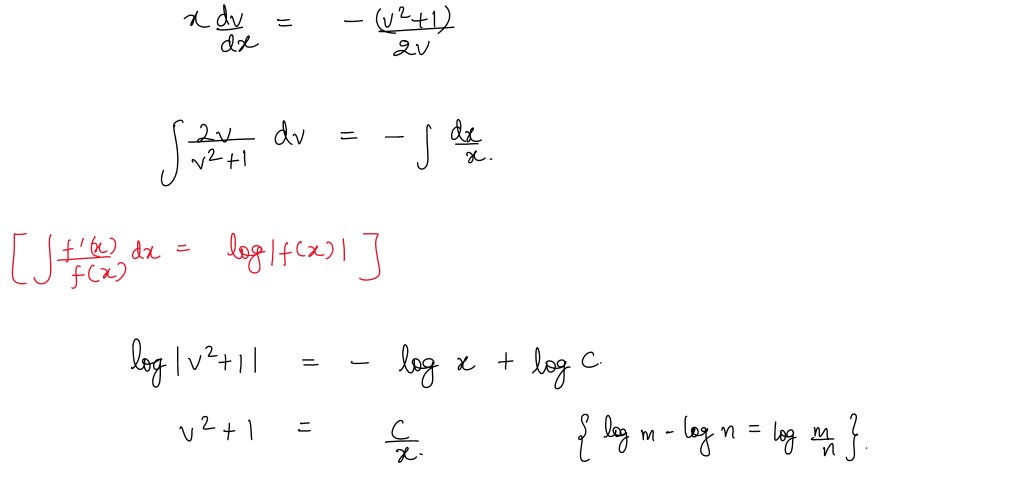 x dv/dx = - (v²+1)/2v
∫ 2v/(v²+1) dv = - ∫ dx/x.
[ ∫ f'(x)/f(x) dx = log|f(x)| ]
log |v²+1| = - log x + log C.
v²+1 = C/x. { log m - log n = log m/n }.